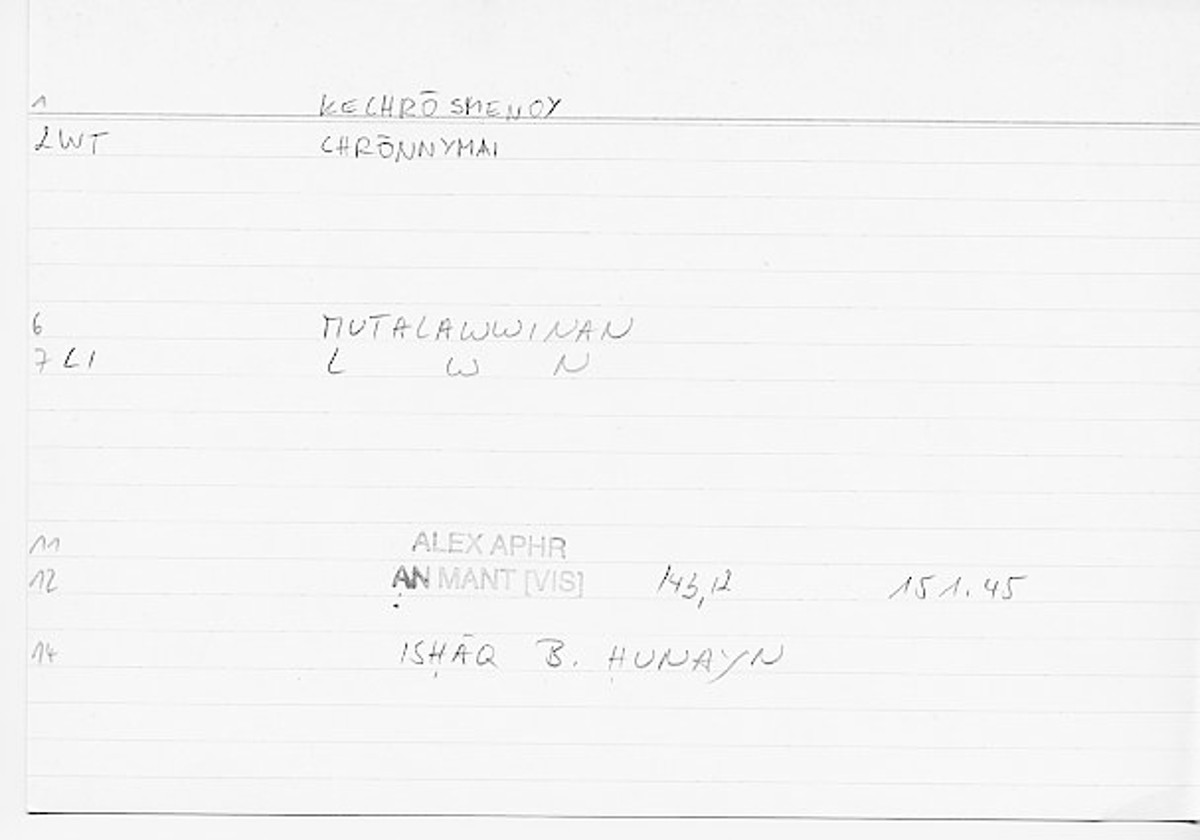 1 KECHRŌSMENOY
2WT CHRŌNNYMAI
6 MUTALAWWINAN
7 LI L W N
11 ALEX APHR
12 AN MANT [VIS] 143,12 151.45
14 ISḤĀQ B. ḤUNAYN